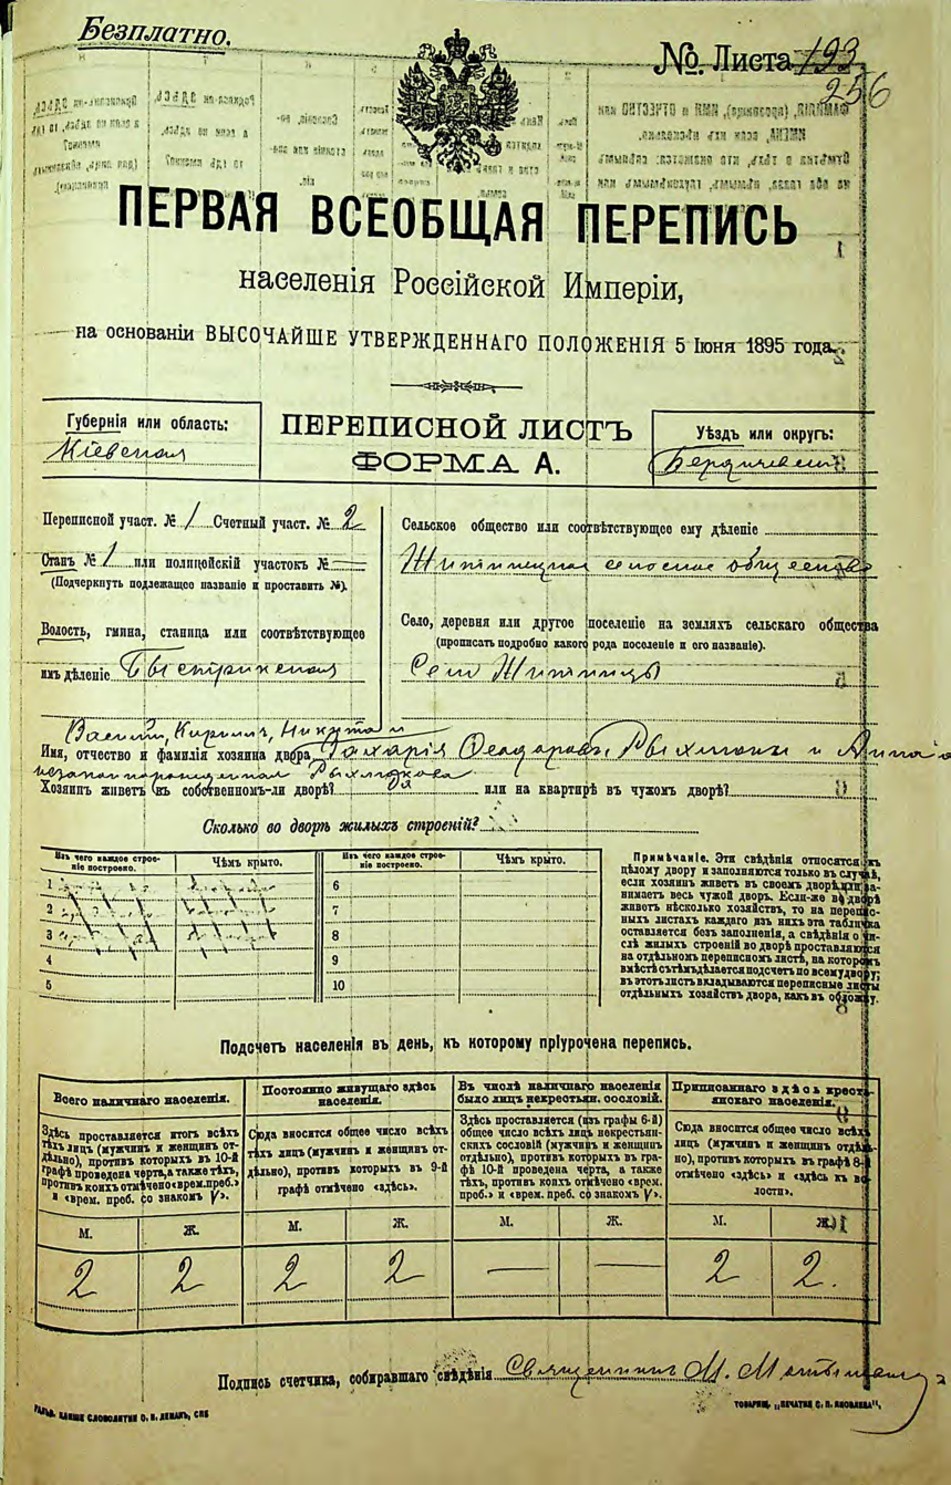 Безплатно.
№ Листа 193
256
ПЕРВАЯ ВСЕОБЩАЯ ПЕРЕПИСЬ
населенія Россійской Имперіи,
на основаніи ВЫСОЧАЙШЕ УТВЕРЖДЕННАГО ПОЛОЖЕНІЯ 5 Іюня 1895 года.
Губернія или область:
Кіевская
ПЕРЕПИСНОЙ ЛИСТЪ
ФОРМА А.
Уѣздъ или округъ:
Бердичевскій
Переписной участ. № 1 Счетный участ. № 2
Станъ № 1 или полицойскій участокъ №
(Подчеркнуть подлежащее названіе и проставить №).
Волость, гмина, станица или соотвѣтствующее
имъ дѣленіе Быстрикская
Сельское общество или соотвѣтствующее ему дѣленіе
Житинецкое сельское общество
Село, деревня или другое поселеніе на земляхъ сельскаго общества
(прописать подробно какого рода поселеніе и его названіе).
Село Житинцы
Василій, Кириллъ, Никита и
Имя, отчество и фамилія хозяина двора Захарія
Хозяинъ живетъ въ собственномъ-ли дворѣ? да или на квартирѣ въ чужомъ дворѣ?
Сколько во дворѣ жилыхъ строеній?
Изъ чего каждое строеніе построено. Чѣмъ крыто. Изъ чего каждое строеніе построено. Чѣмъ крыто.
1 6
2 7
3 8
4 9
5 10
Примѣчаніе. Эти свѣдѣнія относятся къ
цѣлому двору и заполняются только въ случаѣ,
если хозяинъ живетъ въ своемъ дворѣ или за-
нимаетъ весь чужой дворъ. Если-же въ дворѣ
живетъ нѣсколько хозяйствъ, то на перепис-
ныхъ листахъ каждаго изъ нихъ эта табличка
оставляется безъ заполненія, а свѣдѣнія о чи-
слѣ жилыхъ строеній во дворѣ проставляются
на отдѣльномъ переписномъ листѣ, на которомъ
вмѣстѣ съ тѣмъ дѣлается подсчетъ по всему двору;
въ этотъ листъ вкладываются переписные листы
отдѣльныхъ хозяйствъ двора, какъ въ обложку.
Подсчетъ населенія въ день, къ которому пріурочена перепись.
Всего наличнаго населенія.
Здѣсь проставляется итогъ всѣхъ
тѣхъ лицъ (мужчинъ и женщинъ от-
дѣльно), противъ которыхъ въ 10-й
графѣ проведена черта, а также тѣхъ,
противъ коихъ отмѣчено «врем. преб.»
и «врем. преб. со знакомъ V».
Постоянно живущаго здѣсь
населенія.
Сюда вносится общее число всѣхъ
тѣхъ лицъ (мужчинъ и женщинъ от-
дѣльно), противъ которыхъ въ 9-й
графѣ отмѣчено «здѣсь».
Въ числѣ наличнаго населенія
было лицъ некрестьян. сословій.
Здѣсь проставляется (изъ графы 6-й)
общее число всѣхъ лицъ некрестьян-
скихъ сословій (мужчинъ и женщинъ
отдѣльно), противъ которыхъ въ гра-
фѣ 10-й проведена черта, а также
тѣхъ, противъ коихъ отмѣчено «врем.
преб.» и «врем. преб. со знакомъ V».
Приписаннаго здѣсь кресть-
янскаго населенія.
Сюда вносится общее число всѣхъ
лицъ (мужчинъ и женщинъ отдѣль-
но), противъ которыхъ въ графѣ 8-й
отмѣчено «здѣсь» и «здѣсь къ во-
лости».
М. Ж. М. Ж. М. Ж. М. Ж.
2 2 2 2 — — 2 2.
Подпись счетчика, собиравшаго свѣдѣнія Священникъ М.
ТОВАРИЩ. „ПЕЧАТНЯ С. П. ЯКОВЛЕВА“.